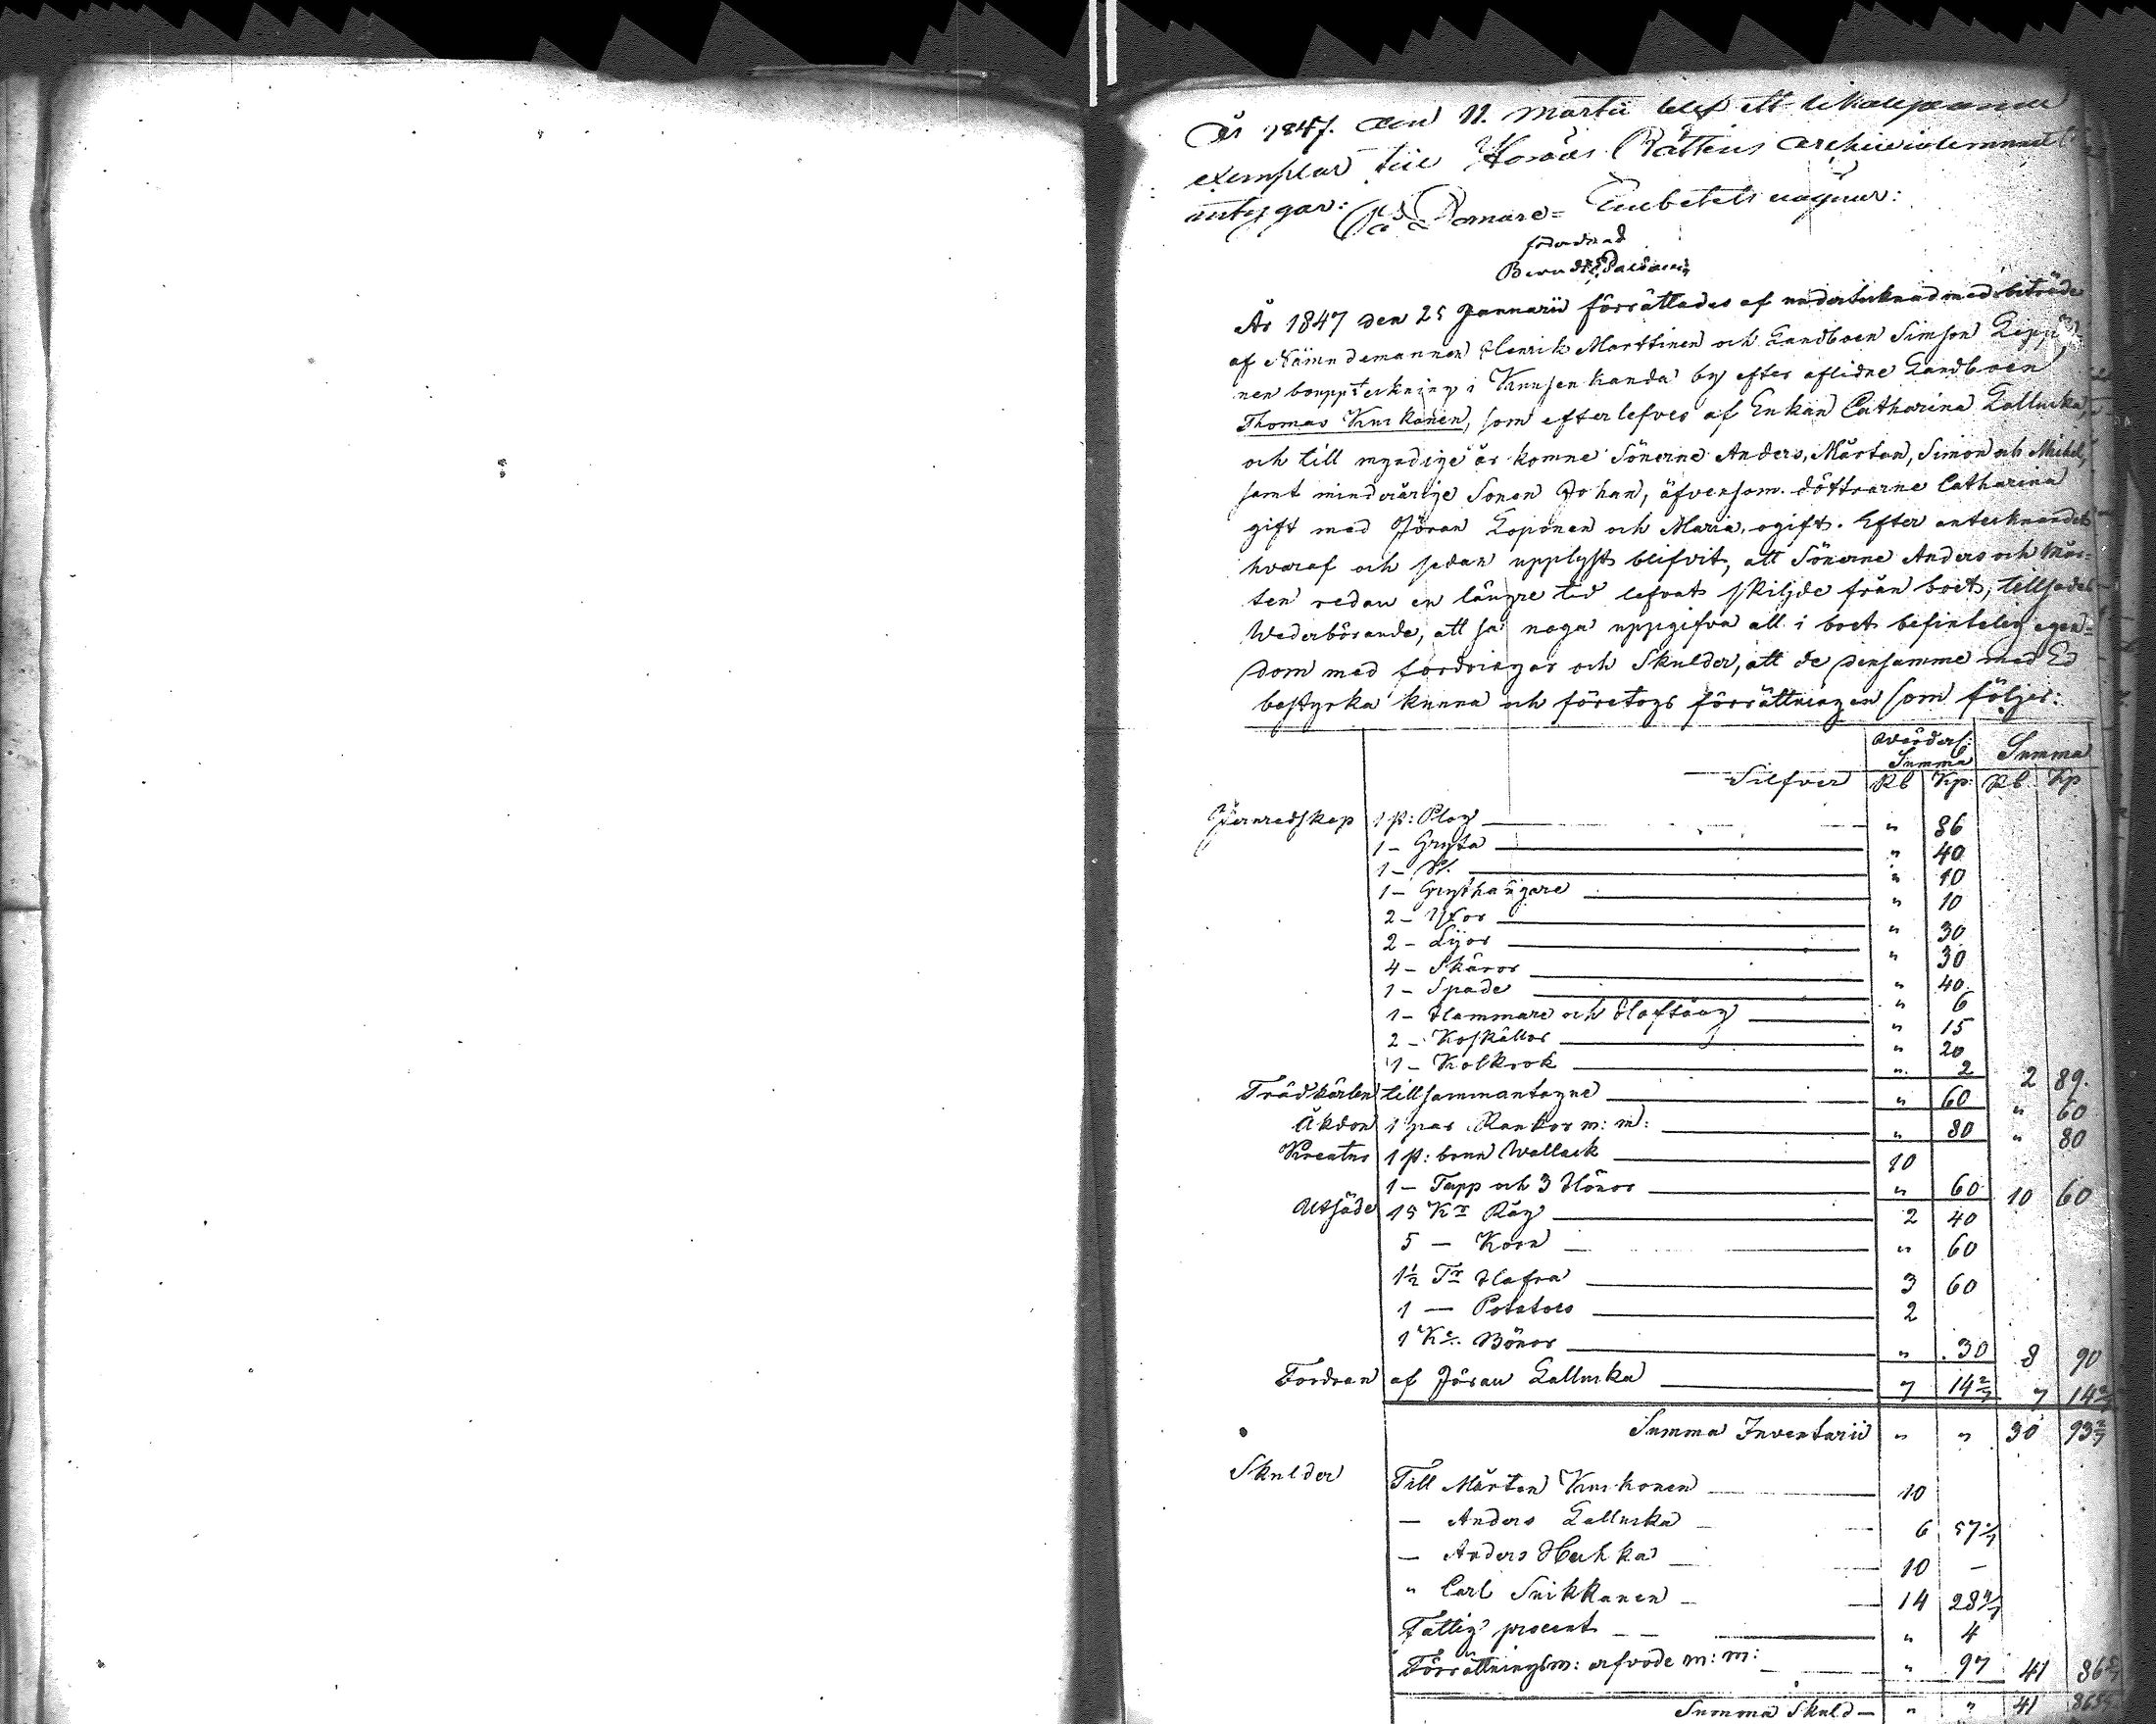 År 1847. den 11. Martii blef ett likalydande
exemplar till Härads Rättens Archiv inlemnadt
intygar: På Domare-Embetets vägnar:
År 1847 den 25 Januarii förrättades af undertecknad med biträde
af Nämndemannen Henrik Marttinen och Landboen Simson Lepp-
nen bouppteckning i Kuusenkanda by efter aflidne Landboen
Thomas Kurkonen, som efterlefves af Enkan Catharina Lallucka,
och till myndige år komne Sönerne Anders, Mårten, Simon och Mickel,
samt minderårige Sonen Johan, äfvensom döttrarne Catharina
gift med Jöran Loponen och Maria, ogift. Efter antecknandet
hvaraf och sedan upplyst blifvit, att Sönerne Anders och Mår-
ten redan en längre tid lefvat skiljde från boet, tillsades
Wederbörande, att så noga uppgifva all i boet befintelig egen-
dom med fordringar och Skulder, att de densamme med Ed
bestyrka kunna och företogs förrättningen som följer:
Värder: Summa Summa
Silfver Rb Kp: Rb Kp
Jernredskap 1 st: Plog " 86
1 - Gryta " 40
1 - " 10
1 - Grythängare " 10
2 - Yxor " 30
2 - Lijor " 30
4 - Skäror " 40
1 - Spade " 6
1 - Hammare och Hoftång " 15
2 - Koskällor " 20
1 - Kolkrok " 2 2 89.
Trädkärlen tillsammantagne " 60 " 60
Åkdon 1 par Kankor m: m: " 80 " 80
Kreatur 1 st: brun Wallack 10
1 - Tupp och 3 Hönor " 60 10 60
Utsäde 15 Kr Råg 2 40
5 - Korn " 60
1½ Tr Hafra 3 60
1 - Potatoes 2
1 Kr. Bönor " 30 8 90
Fordran af Jöran Lallucka 7 14 2/7 7 14 2/7
Summa Inventarii " " 30 93 2/7
Skulder Till Mårten Kurkonen 10
- Anders Lallucka 6 57 1/7
- Anders Huhka 10 -
" Carl Snikkanen 14 28 4/7
Fattig procent " 4
Förrättningsm: arfvode m: m: " 97 41 86 5/7
Summa Skuld " " 41 86 5/7